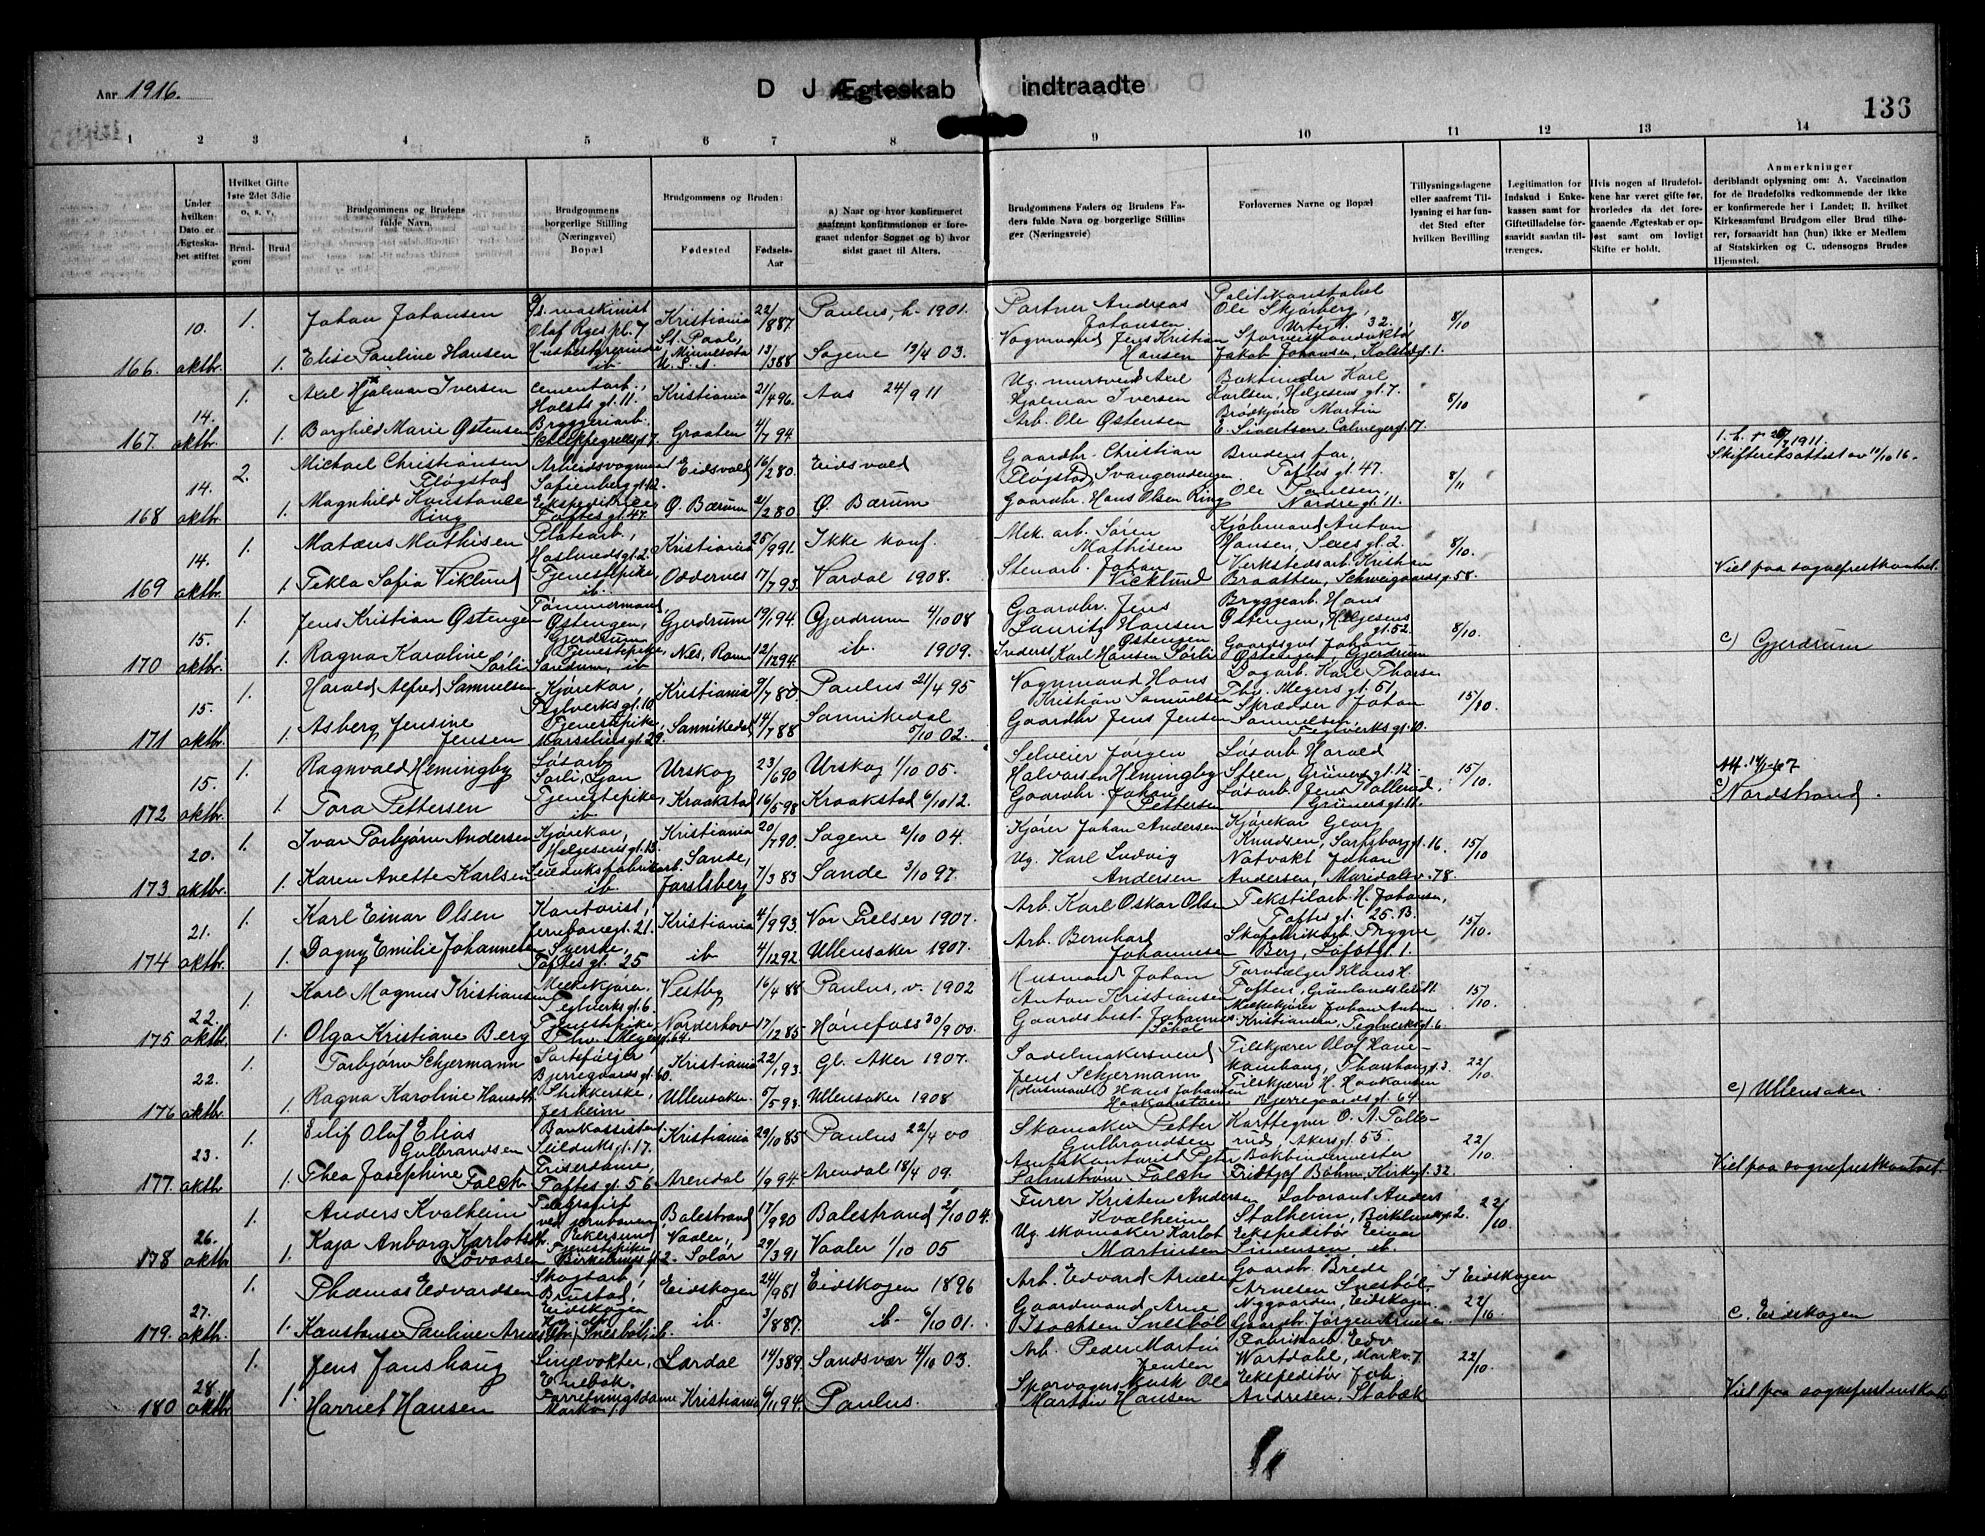 Aar 1916.
D J Ægteskab indtraadte
136
1 2 3 4 5 6 7 8 9 10 11 12 13 14
Under hvilken Dato er Ægteskabet stiftet
Hvilket Gifte 1ste 2det 3die o. s. v.
Brudgom
Brud
Brudgommens og Brudens fulde Navn
Brudgommens borgerlige Stilling (Næringsvei) Bopæl
Brudgommens og Bruden:
Fødested
Fødsels-Aar
a) Naar og hvor konfirmeret saafremt konfirmationen er foregaaet udenfor Sognet og b) hvor sidst gaaet til Alters.
Brudgommens Faders og Brudens Faders fulde Navn og borgerlige Stillinger (Næringsveie)
Forlovernes Navne og Bopæl
Tillysningsdagene eller saafremt Tillysning ei har fundet Sted efter hvilken Bevilling
Legitimation for Indskud i Enkekassen samt for Giftetilladelse forsaavidt saadan tiltrænges.
Hvis nogen af Brudefolkene har været gifte før, hvorledes da det foregaaende Ægteskab er opløst samt om lovligt Skifte er holdt.
Anmerkninger deriblandt oplysning om: A. Vaccination for de Brudefolks vedkommende der ikke er konfirmerede her i Landet; B. hvilket Kirkesamfund Brudgom eller Brud tilhører, forsaavidt han (hun) ikke er Medlem af Statskirken og C. udensogns Brudes Hjemsted.
10. 1. Johan Johansen maskinist Olaf Ryes pl. 7 Kristiania 22/887. Paulus, h. 1901. Partner Andreas Johansen. Politikonstabel Ole Skjørberg, Urtegt. 32. 8/10
166. oktbr. 1. Elise Pauline Hansen Husbestyrerinde ib. St. Paul, Minnesota U.S.A. 13/388 Sagene 13/4 03. Vognmand Jens Kristian Hansen Jakob Johansen, Kolstadgt. 1.
14. 1. Axel Hjalmar Iversen Cementarb., Holsts gt. 11. Kristiania 21/496. Aas 24/9 11 Ug. mursvend Axel Hjalmar Iversen Boktrinder Karl Karlsen, Helgesens gt. 7. 8/10
167. oktbr. 1. Borghild Marie Østensen Bryggeriarb. Skleppegrellsgt. 7. 4/7 94 Arb. Ole Østensen Brødkjører Martin E. Sivertsen Calmeyergt. 17.
14. 2. Michael Christiansen Fløgstad Arbeidsvognmand Sofienberggt. 12. Eidsvold 16/280. Eidsvold Gaardbr. Christian Fløgstad, Svangerudengen Brudens far, Toftes gt. 47. 8/11 Skifteretsattest av 11/10 16.
168 oktbr. 1. Magnhild Konstance Ring Ekspeditrice, Toftes gt. 47. Ø. Bærum 21/280 Ø. Bærum Gaardbr. Hans Olsen Ring Ole Paulsen, Nordregt. 11.
14. 1. Matæus Mathisen Platearb., Haslundsgt. 2. Kristiania 25/991. Ikke konf. Mek. arb. Søren Mathisen Kjøbmand Anton Hansen, Sexesgt. 2. 8/10.
169 oktbr. 1. Tekla Sofia Viklund Tjenestepike, ib. Oddernes 17/793. Vardal 1908. Stenarb. Johan Vicklund Verkstedsarb. Kristian Braatten, Schweigaardsgt. 58. Viet paa sogneprestkontoret.
15. 1. Jens Kristian Østengen Tømmermand, Østengen, Gjerdrum Gjerdrum 19/194. Gjerdrum 4/10 08 Gaardbr. Jens Lauritz Hansen Østengen Bryggearb. Hans Østengen, Helgesens gt. 52. 8/10.
170 oktbr. 1. Ragna Karoline Sørli Tjenestepike, ib. Nes, Rom. 12/1294. ib. 1909. Inderst Karl Hansen Sørli Gaardsgut Johan Østengen, Gjerdrum c) Gjerdrum
15. 1. Harald Alfred Samuelsen Kjørekar, Teglverksgt. 10 Kristiania 9/780. Paulus 21/4 95 Vognmand Hans Kristian Samuelsen Dagarb. Karl Thorsen Thv. Meyers gt. 51 15/10.
171 oktbr. 1. Asberg Jensine Jensen Tjenestepike, Marselius gt. 29. Sannikedal 14/788 Sannikedal 5/10 02. Gaardbr. Jens Jensen Skrædder Johan Samuelsen, Teglverksgt. 10.
15. 1. Ragnvald Hemingby Løsarb. Sørli, Ljan Urskog 23/690 Urskog 1/10 05. Selveier Jørgen Halvorsen Hemingby Løsarb. Harald Steen, Grünersgt. 12. 15/10.
172 oktbr. 1. Tora Pettersen Tjenestepike, ib. Kraakstad 16/598 Kraakstad 6/10 12. Gaardbr. Johan Pettersen Løsarb. Jens Tollerud, Grünersgt. 11. c) Nordstrand.
20. 1. Ivar Torbjørn Andersen Kjørekar, Helgesens gt. 15. Kristiania 20/790. Sagene 2/10 04. Kjører Johan Andersen Kjørekar Georg Knudsen, Sarpsborggt. 16. 15/10
173 oktbr. 1. Karen Anette Karlsen Seildukfabrikarb. ib. Sande, Jarlsberg 7/383 Sande 3/10 97. Ug. Karl Ludvig Andersen Natvakt Johan Andersen, Maridalsv. 78.
21. 1. Karl Einar Olsen Kontorist, Jernbanegt. 21. Kristiania 4/993. Vor Frelser 1907. Arb. Karl Oskar Olsen Tekstilarb. H. Johansen, Toftes gt. 25 B. 15/10.
174 oktbr. 1. Dagny Emilie Johannesen Syerske, Toftes gt. 25 ib 4/1292 Ullensaker 1907. Arb. Bernhard Johannesen Skofabrikarb. Trygve Berg, Lofotgt. 1.
22. 1. Karl Magnus Kristiansen Melkekjører. Teglverksgt. 6. Vestby 16/488 Paulus, v. 1902 Husmand Johan Anton Kristiansen Torvsælger Klaus H. Toften, Grønlandsleret 15/10.
175 oktbr. 1. Olga Kristiane Berg Tjenestepike Thv. Meyersgt. 64. Norderhov 17/1285 Hønefoss 30/9 00. Gaardsbest. Johannes Melkekjører Johan Anton Kristiansen, Teglverksgt. 6
22. 1. Torbjørn Schjermann Bjerregaardsgt. 60. Kristiania 22/193. Gl. Aker 1907. Sadelmakersvend Jens Schjermann Tilskjærer Olaf Hane-kamhaug, Thorshauggt. 3. 22/10
176 oktbr. 1. Ragna Karoline Hansdtr. Strikkerske, Jesheim Ullensaker 5/593. Ullensaker 1908 Husmand Hans Johansen Haakenstuen Tilskjærer H. Haakansen Bjerregaards gt. 64. c) Ullensaker
23. 1. Eilif Olaf Elias Gulbrandsen Bankassistent Seilduksgt. 17. Kristiania 29/1085 Paulus 22/4 00 Skomaker Petter Gulbrandsen Karttegner O. A. Tollerud, Akersgt. 55. 22/10.
177. oktbr. 1. Thea Josephine Falck Friserdame, Toftes gt. 56 Arendal 1/994 Arendal 18/4 09. Amtskontorist Peter Palmstrøm Falch Bokbindermester Fridtjof Bøhm, Kirkegt. 32. Viet paa sogneprestkontoret
26. 1. Anders Kvalheim Telegrafist ved jernbanen, Ekersund Balestrand 17/990 Balestrand 2/10 04. Furer Kristen Andersen Kvalheim Laborant Anders Stalheim, Birkelundgt. 2. 22/10.
178 oktbr. 1. Kaja Anborg Karlotsdtr. Løvaasen Tjenestepike Vaaler, Solør 29/391 Vaaler 1/10 05 Ug. skomaker Karlot Martinsen Ekspeditør Einar Simensen, ib.
27. 1. Thomas Edvardsen Skogsarb., Brustad, Eidskogen Eidskogen 24/981 Eidskogen 1896 Arb. Edvard Arnesen Gaardbr. Brede Arnesen Snesbøl, Nygaarden, Eidskogen. I Eidskogen 22/10
179. oktbr. 1. Konstanse Pauline Arnesdtr. Snesbøl, ib. ib. 3/887. ib. 6/10 01. Gaardmand Arne Isachsen Snesbøl Gaardbr. Jørgen Arnesen. C. Eidskogen
28. 1. Jens Janshaug Sindsvokter, Enebak. Lardal 14/389. Sandsvær 4/10 03. Arb. Peder Martin Jensen Fabrikarb. Edv. Wartdahl, Markv. 7. 22/10
180 oktbr. 1. Harriet Hansen Forretningsdame Markv. Kristiania 6/194. Paulus. Sporvognskusk Ole Martin Hansen Ekspeditør Joh. Andresen, Stabæk Viet paa sogneprestenskontor